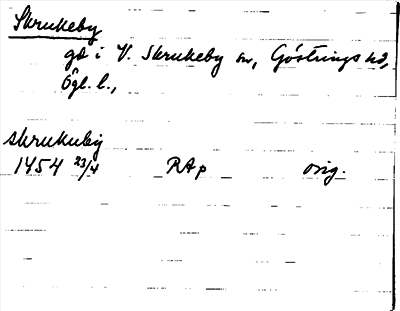 Skrukeby
gd i V. Skrukeby sn, Göstrings hd,
Ögl. l.,
skrukuby
1454 23/4 RAp orig.